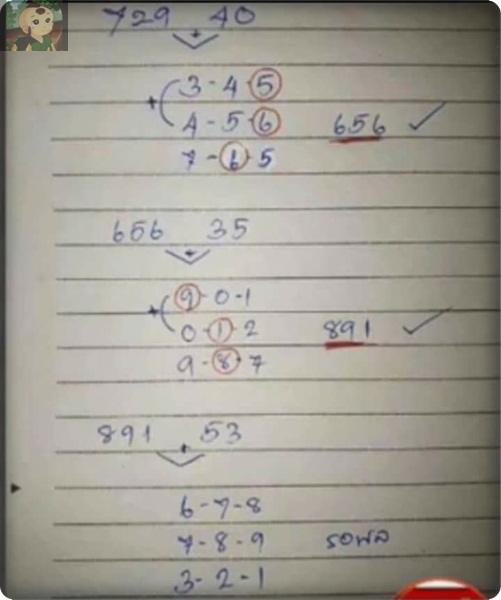 729 40
+
3-4-5
+
4-5-6 656 ✓
7-6-5
656 35
+
9-0-1
+
0-1-2 891 ✓
9-8-7
891 53
+
6-7-8
7-8-9 รอผล
3-2-1